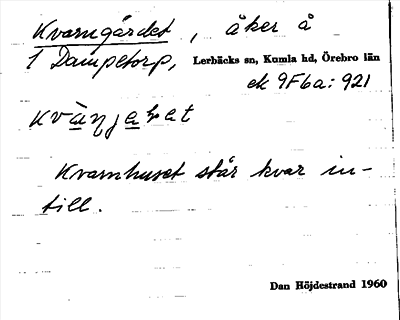 Kvarngärdet, åker å
1 Dampetorp, Lerbäcks sn, Kumla hd, Örebro län
ek 9F6a:921
Kvarnhuset står kvar in-
till.
Dan Höjdestrand 1960